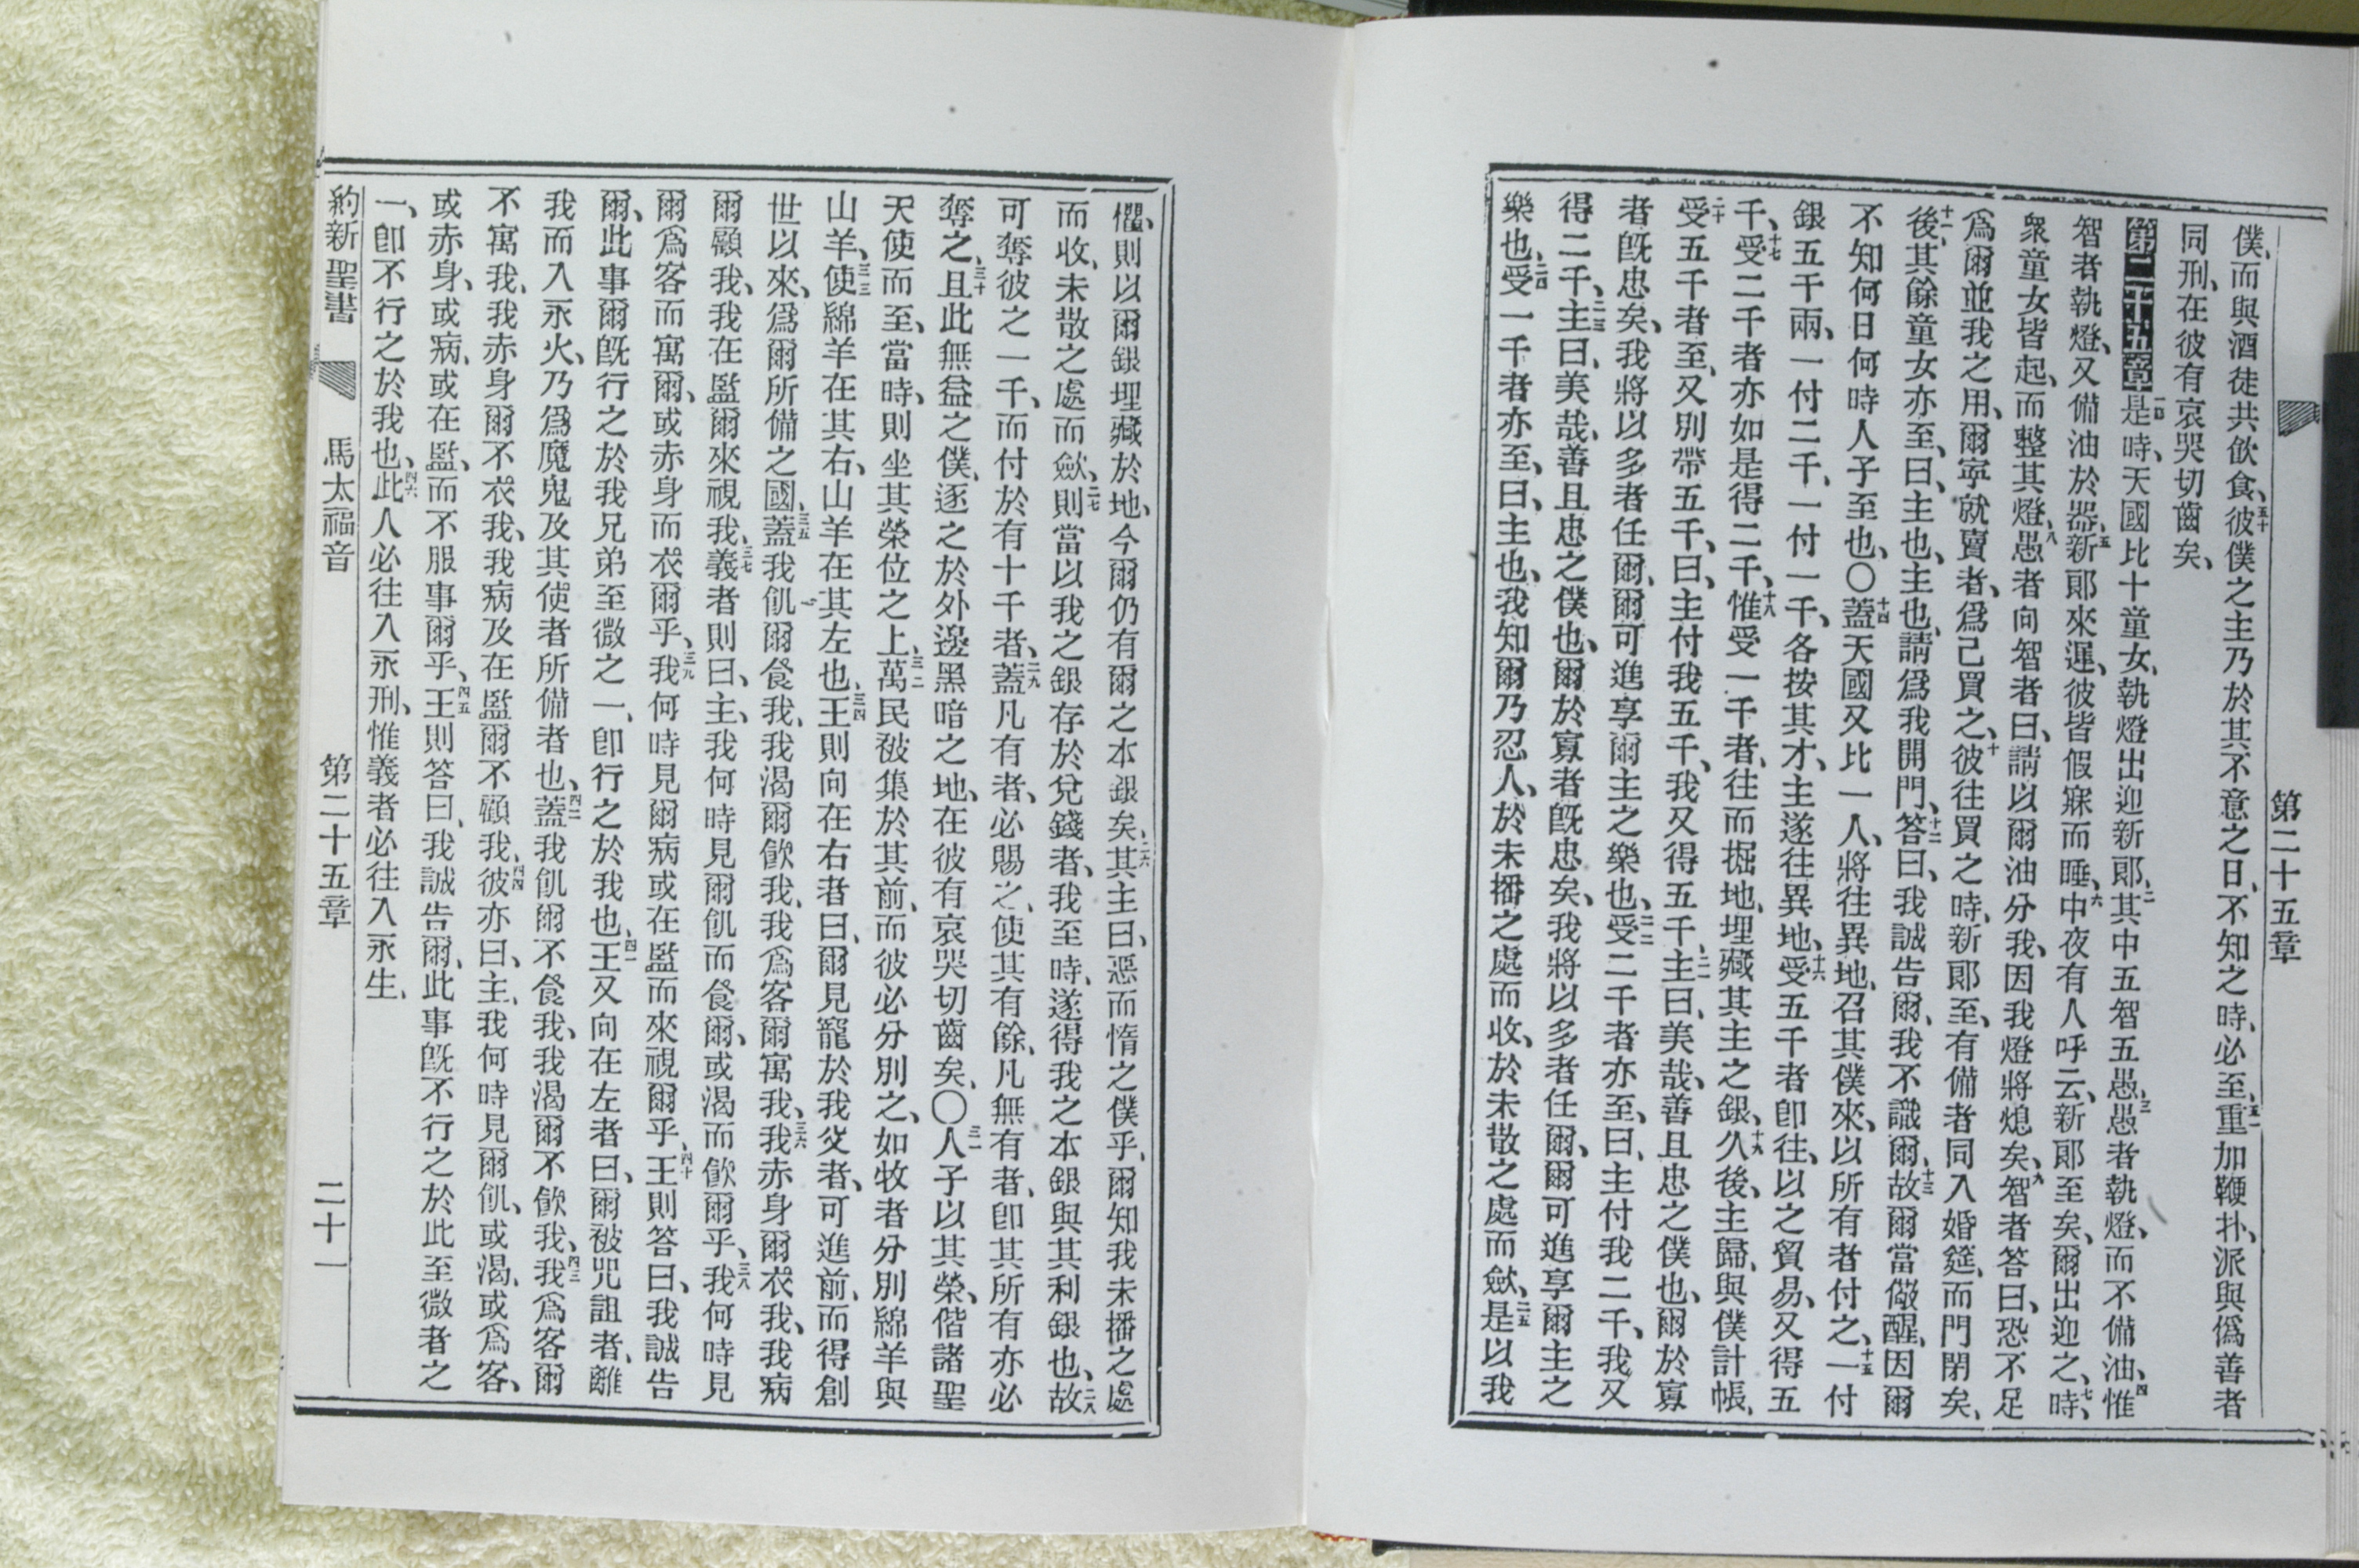 第二十五章
僕、而與酒徒共飮食、五十彼僕之主乃於其不意之日、不知之時、必至、五一重加鞭扑、派與僞善者
同刑、在彼有哀哭切齒矣、
第二十五章一是時、天國比十童女、執燈出迎新郞、二其中五智五愚、三愚者執燈、而不備油、四惟
智者執燈、又備油於器、五新郞來遲、彼皆假寐而睡、六中夜有人呼云、新郞至矣、爾出迎之、七時、
衆童女皆起、而整其燈、八愚者向智者曰、請以爾油分我、因我燈將熄矣、九智者答曰、恐不足
爲爾並我之用、爾寧就賣者、爲己買之、十彼往買之時、新郞至、有備者同入婚筵、而門閉矣、
十一後、其餘童女亦至、曰、主也、主也、請爲我開門、十二答曰、我誠告爾、我不識爾、十三故爾當儆醒、因爾
不知何日何時人子至也、〇十四蓋天國又比一人、將往異地、召其僕來、以所有者付之、十五一付
銀五千兩、一付二千、一付一千、各按其才、主遂往異地、十六受五千者卽往、以之貿易、又得五
千、十七受二千者亦如是得二千、十八惟受一千者、往而掘地、埋藏其主之銀、十九久後、主歸、與僕計帳、
二十受五千者至、又別帶五千、曰、主付我五千、我又得五千、二一主曰、美哉、善且忠之僕也、爾於寡
者旣忠矣、我將以多者任爾、爾可進享爾主之樂也、二二受二千者亦至、曰、主付我二千、我又
得二千、二三主曰、美哉、善且忠之僕也、爾於寡者旣忠矣、我將以多者任爾、爾可進享爾主之
樂也、二四受一千者亦至、曰、主也、我知爾乃忍人、於未播之處而收、於未散之處而斂、二五是以我
懼、則以爾銀埋藏於地、今爾仍有爾之本銀矣、二六其主曰、惡而惰之僕乎、爾知我未播之處
而收、未散之處而斂、二七則當以我之銀存於兌錢者、我至時、遂得我之本銀與其利銀也、二八故
可奪彼之一千、而付於有十千者、二九蓋凡有者、必賜之、使其有餘、凡無有者、卽其所有亦必
奪之、三十且此無益之僕、逐之於外邊黑暗之地、在彼有哀哭切齒矣、〇三一人子以其榮、偕諸聖
天使而至、當時、則坐其榮位之上、三二萬民被集於其前、而彼必分別之、如牧者分別綿羊與
山羊、三三使綿羊在其右、山羊在其左也、三四王則向在右者曰、爾見寵於我父者、可進前、而得創
世以來、爲爾所備之國、三五蓋我飢爾食我、我渴爾飮我、我爲客爾寓我、三六我赤身爾衣我、我病
爾顧我、我在監爾來視我、三七義者則曰、主、我何時見爾飢而食爾、或渴而飮爾乎、三八我何時見
爾爲客而寓爾、或赤身而衣爾乎、三九我何時見爾病或在監而來視爾乎、四十王則答曰、我誠告
爾、此事爾旣行之於我兄弟至微之一、卽行之於我也、四一王又向在左者曰、爾被咒詛者、離
我而入永火、乃爲魔鬼及其使者所備者也、四二蓋我飢爾不食我、我渴爾不飮我、四三我爲客爾
不寓我、我赤身爾不衣我、我病及在監爾不顧我、四四彼亦曰、主、我何時見爾飢、或渴、或爲客、
或赤身、或病、或在監、而不服事爾乎、四五王則答曰、我誠告爾、此事旣不行之於此至微者之
一、卽不行之於我也、四六此人必往入永刑、惟義者必往入永生、
約新聖書 馬太福音 第二十五章 二十一